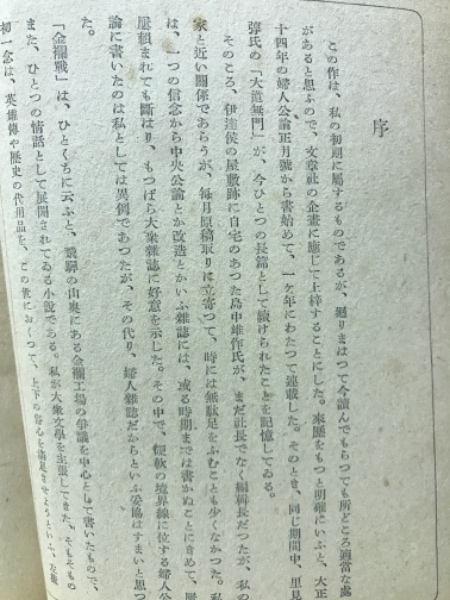 序
この作は、私の初期に屬するものであるが、廻りまはつて今讀んでもらつても所どころ適當な處
があると思ふので、文章社の企畫に應じて上梓することにした。來歷をもつと明確にいふと、大正
十四年の婦人公論正月號から書始めて、一ケ年にわたつて連載した。そのとき、同じ期間中、里見
弴氏の「大道無門」が、今ひとつの長篇として續けられたことを記憶してゐる。
そのころ、伊達侯の屋敷跡に自宅のあつた島中雄作氏が、まだ社長でなく編輯長だつたが、私の
家と近い關係であらうが、每月原稿取りに立寄つて、時には無駄足をふむことも少くなかつた。私
は、一つの信念から中央公論とか改造とかいふ雜誌には、或る時期までは書かぬことにきめて、屢
屢賴まれても斷はり、もつぱら大衆雜誌に好意を示した。その中で、硬軟の境界線に位する婦人公
論に書いたのは私としては異例であつたが、その代り、婦人雜誌だからといふ妥協はすまいと思つ
た。
「金襴戰」は、ひとくちに云ふと、飛驒の山奧にある金襴工場の爭議を中心として書いたもので、
また、ひとつの情話として展開されてゐる小說である。私が大衆文學を主張してきた、そもそもの
初一念は、英雄傳や歷史の代用品を、この世におくつて、上下の客心を滿足させようといふ、